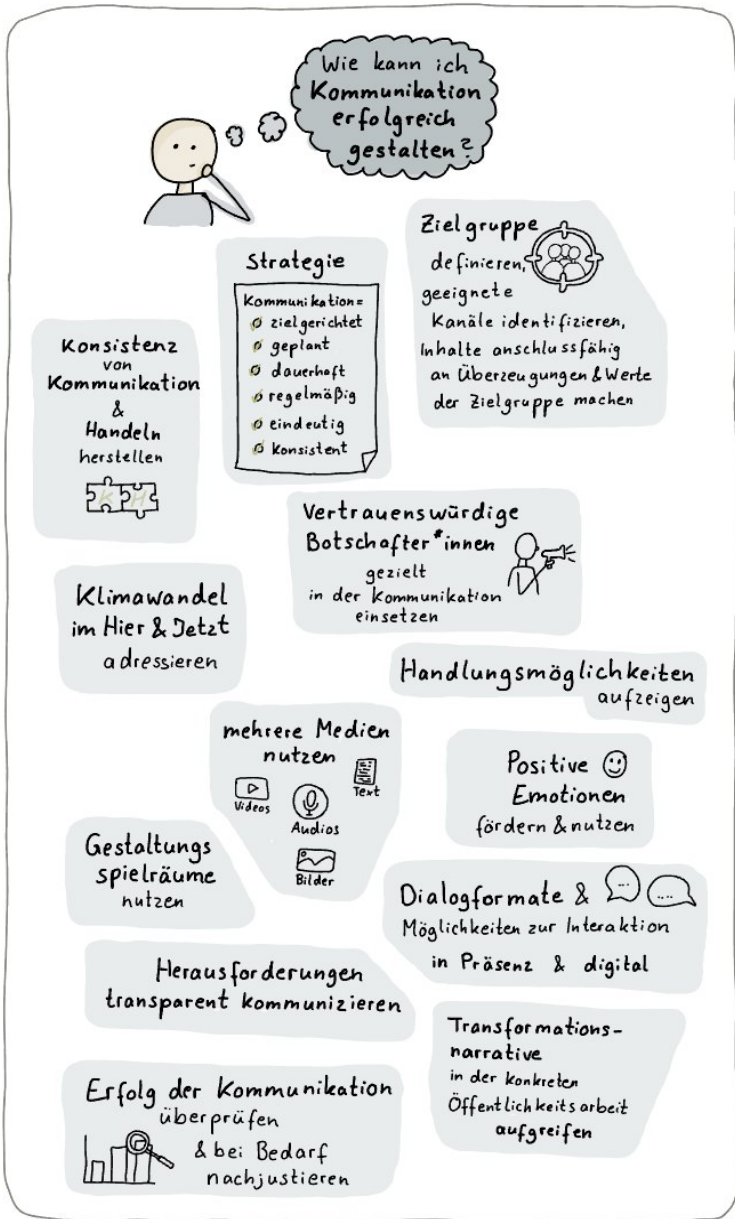 Wie kann ich
Kommunikation
erfolgreich
gestalten?
Strategie
Kommunikation=
zielgerichtet
geplant
dauerhaft
regelmäßig
eindeutig
konsistent
Zielgruppe
definieren,
geeignete
Kanäle identifizieren,
Inhalte anschlussfähig
an Überzeugungen & Werte
der Zielgruppe machen
Konsistenz
von
Kommunikation
&
Handeln
herstellen
K H
Vertrauenswürdige
Botschafter*innen
gezielt
in der Kommunikation
einsetzen
Klimawandel
im Hier & Jetzt
adressieren
Handlungsmöglichkeiten
aufzeigen
mehrere Medien
nutzen
Videos
Audios
Text
Bilder
Positive
Emotionen
fördern & nutzen
Gestaltungs
spielräume
nutzen
Dialogformate &
Möglichkeiten zur Interaktion
in Präsenz & digital
Herausforderungen
transparent kommunizieren
Transformations-
narrative
in der konkreten
Öffentlichkeitsarbeit
aufgreifen
Erfolg der Kommunikation
überprüfen
& bei Bedarf
nachjustieren